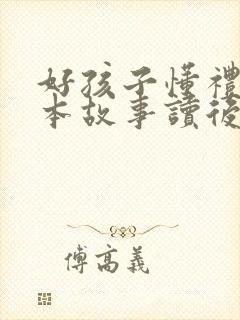 好孩子懂禮
本故事讀後
傅高義